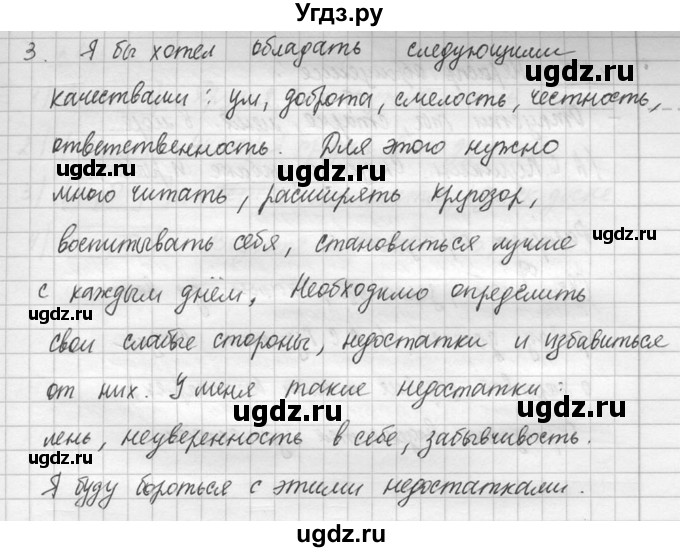 Угдз.ру
3. Я бы хотел обладать следующими
ugdz.ru
ugdz.ru
качествами: ум, доброта, смелость, честность,
ugdz.ru
ответственность. Для этого нужно
много читать, расширять кругозор,
ugdz.ru
ugdz.ru
воспитывать себя, становиться лучше
ugdz.ru
с каждым днём. Необходимо определить
ugdz.ru
свои слабые стороны, недостатки и избавиться
от них. У меня такие недостатки:
ugdz.ru
ugdz.ru
лень, неуверенность в себе, забывчивость.
ugdz.ru
Я буду бороться с этими недостатками.
ugdz.ru